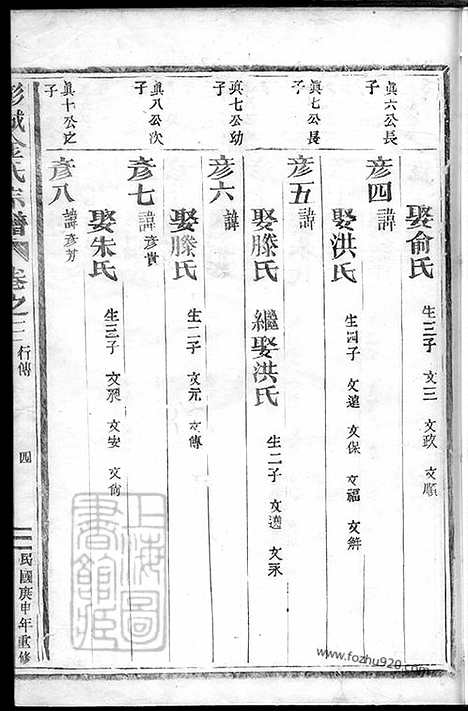 娶俞氏 生三子 文三 文政 文順
眞六公長子 彦四 諱
娶洪氏 生四子 文遠 文保 文福 文辮
眞七公長子 彦五 諱
娶滕氏 繼娶洪氏 生二子 文遠 文永
眞七公幼子 彦六 諱
娶滕氏 生二子 文元 文傳
眞八公次子 彦七 諱彦貴
娶朱氏 生三子 文 文安 文尙
眞十公之子 彦八 諱彦芳
彭城金氏宗譜 卷之二 行傳 四 民國庚申年重修
上海圖書館藏
www.fozhu920.com